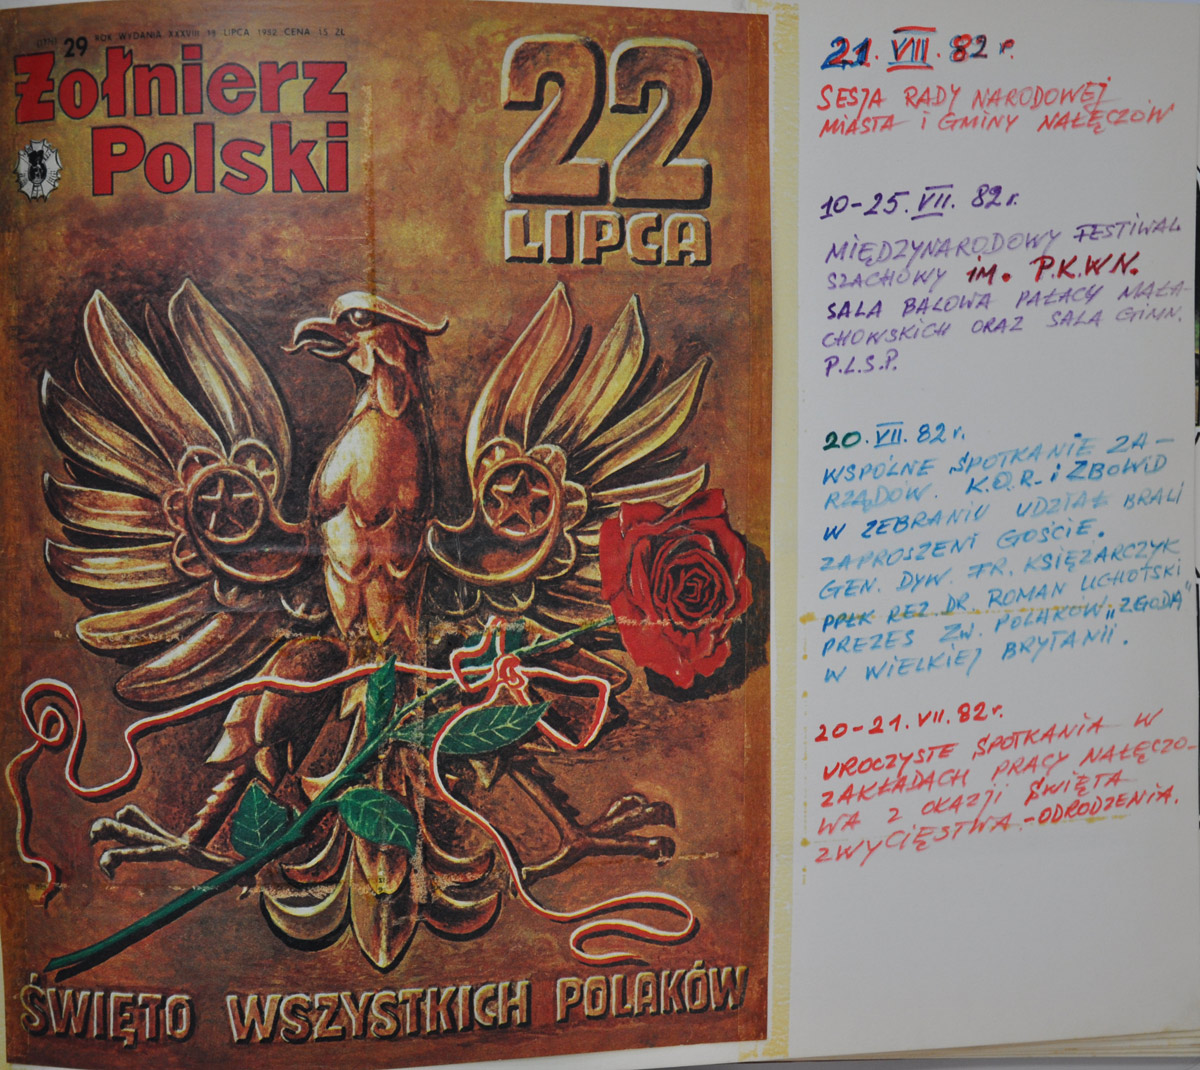 29 ROK WYDANIA XXXVIII 18 LIPCA 1982 CENA 15 ZŁ
Żołnierz
Polski
22
LIPCA
ŚWIĘTO WSZYSTKICH POLAKÓW
21. VII. 82 r.
SESJA RADY NARODOWEJ
MIASTA i GMINY NAŁĘCZÓW
10-25. VII. 82 r.
MIĘDZYNARODOWY FESTIWAL
SZACHOWY IM. P.K.W.N.
SALA BALOWA PAŁACU MAŁA-
CHOWSKICH ORAZ SALA GIMN.
P.L.S.P.
20. VII. 82 r.
WSPÓLNE SPOTKANIE ZA-
RZĄDÓW. K.O.R. i ZBOWID
W ZEBRANIU UDZIAŁ BRALI
ZAPROSZENI GOŚCIE.
GEN. DYW. FR. KSIĘŻARCZYK
PPŁK REZ. DR ROMAN UCHOTSKI
PREZES ZW. POLAKÓW „ZGODA"
W WIELKIEJ BRYTANII.
20-21. VII. 82 r.
UROCZYSTE SPOTKANIA W
ZAKŁADACH PRACY NAŁĘCZO-
WA Z OKAZJI ŚWIĘTA
ZWYCIĘSTWA - ODRODZENIA.